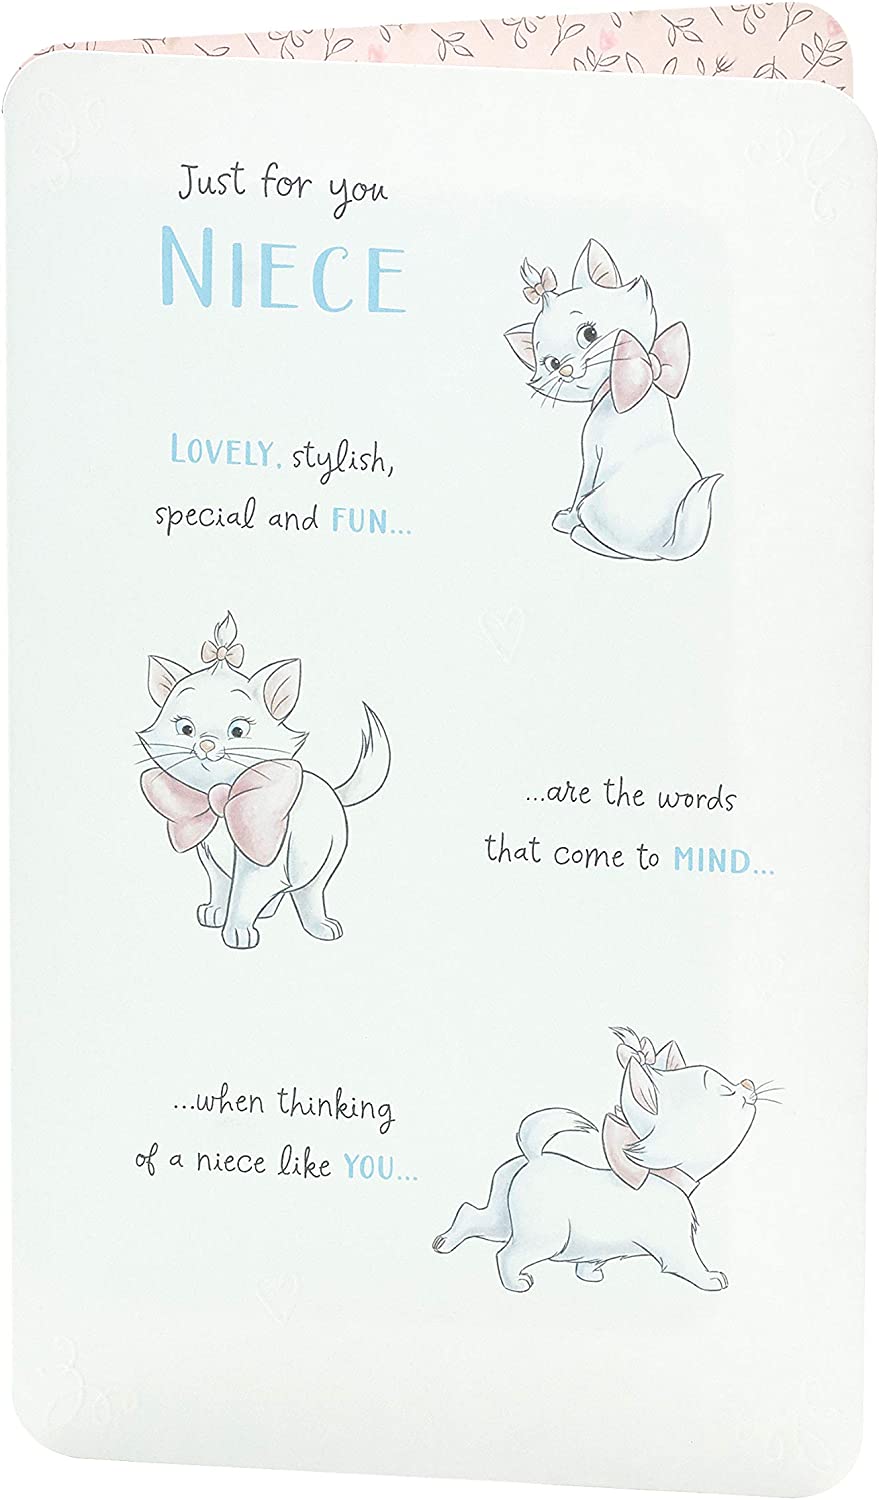 Just for you
NIECE
LOVELY, stylish,
special and FUN...
...are the words
that come to MIND...
...when thinking
of a niece like YOU...